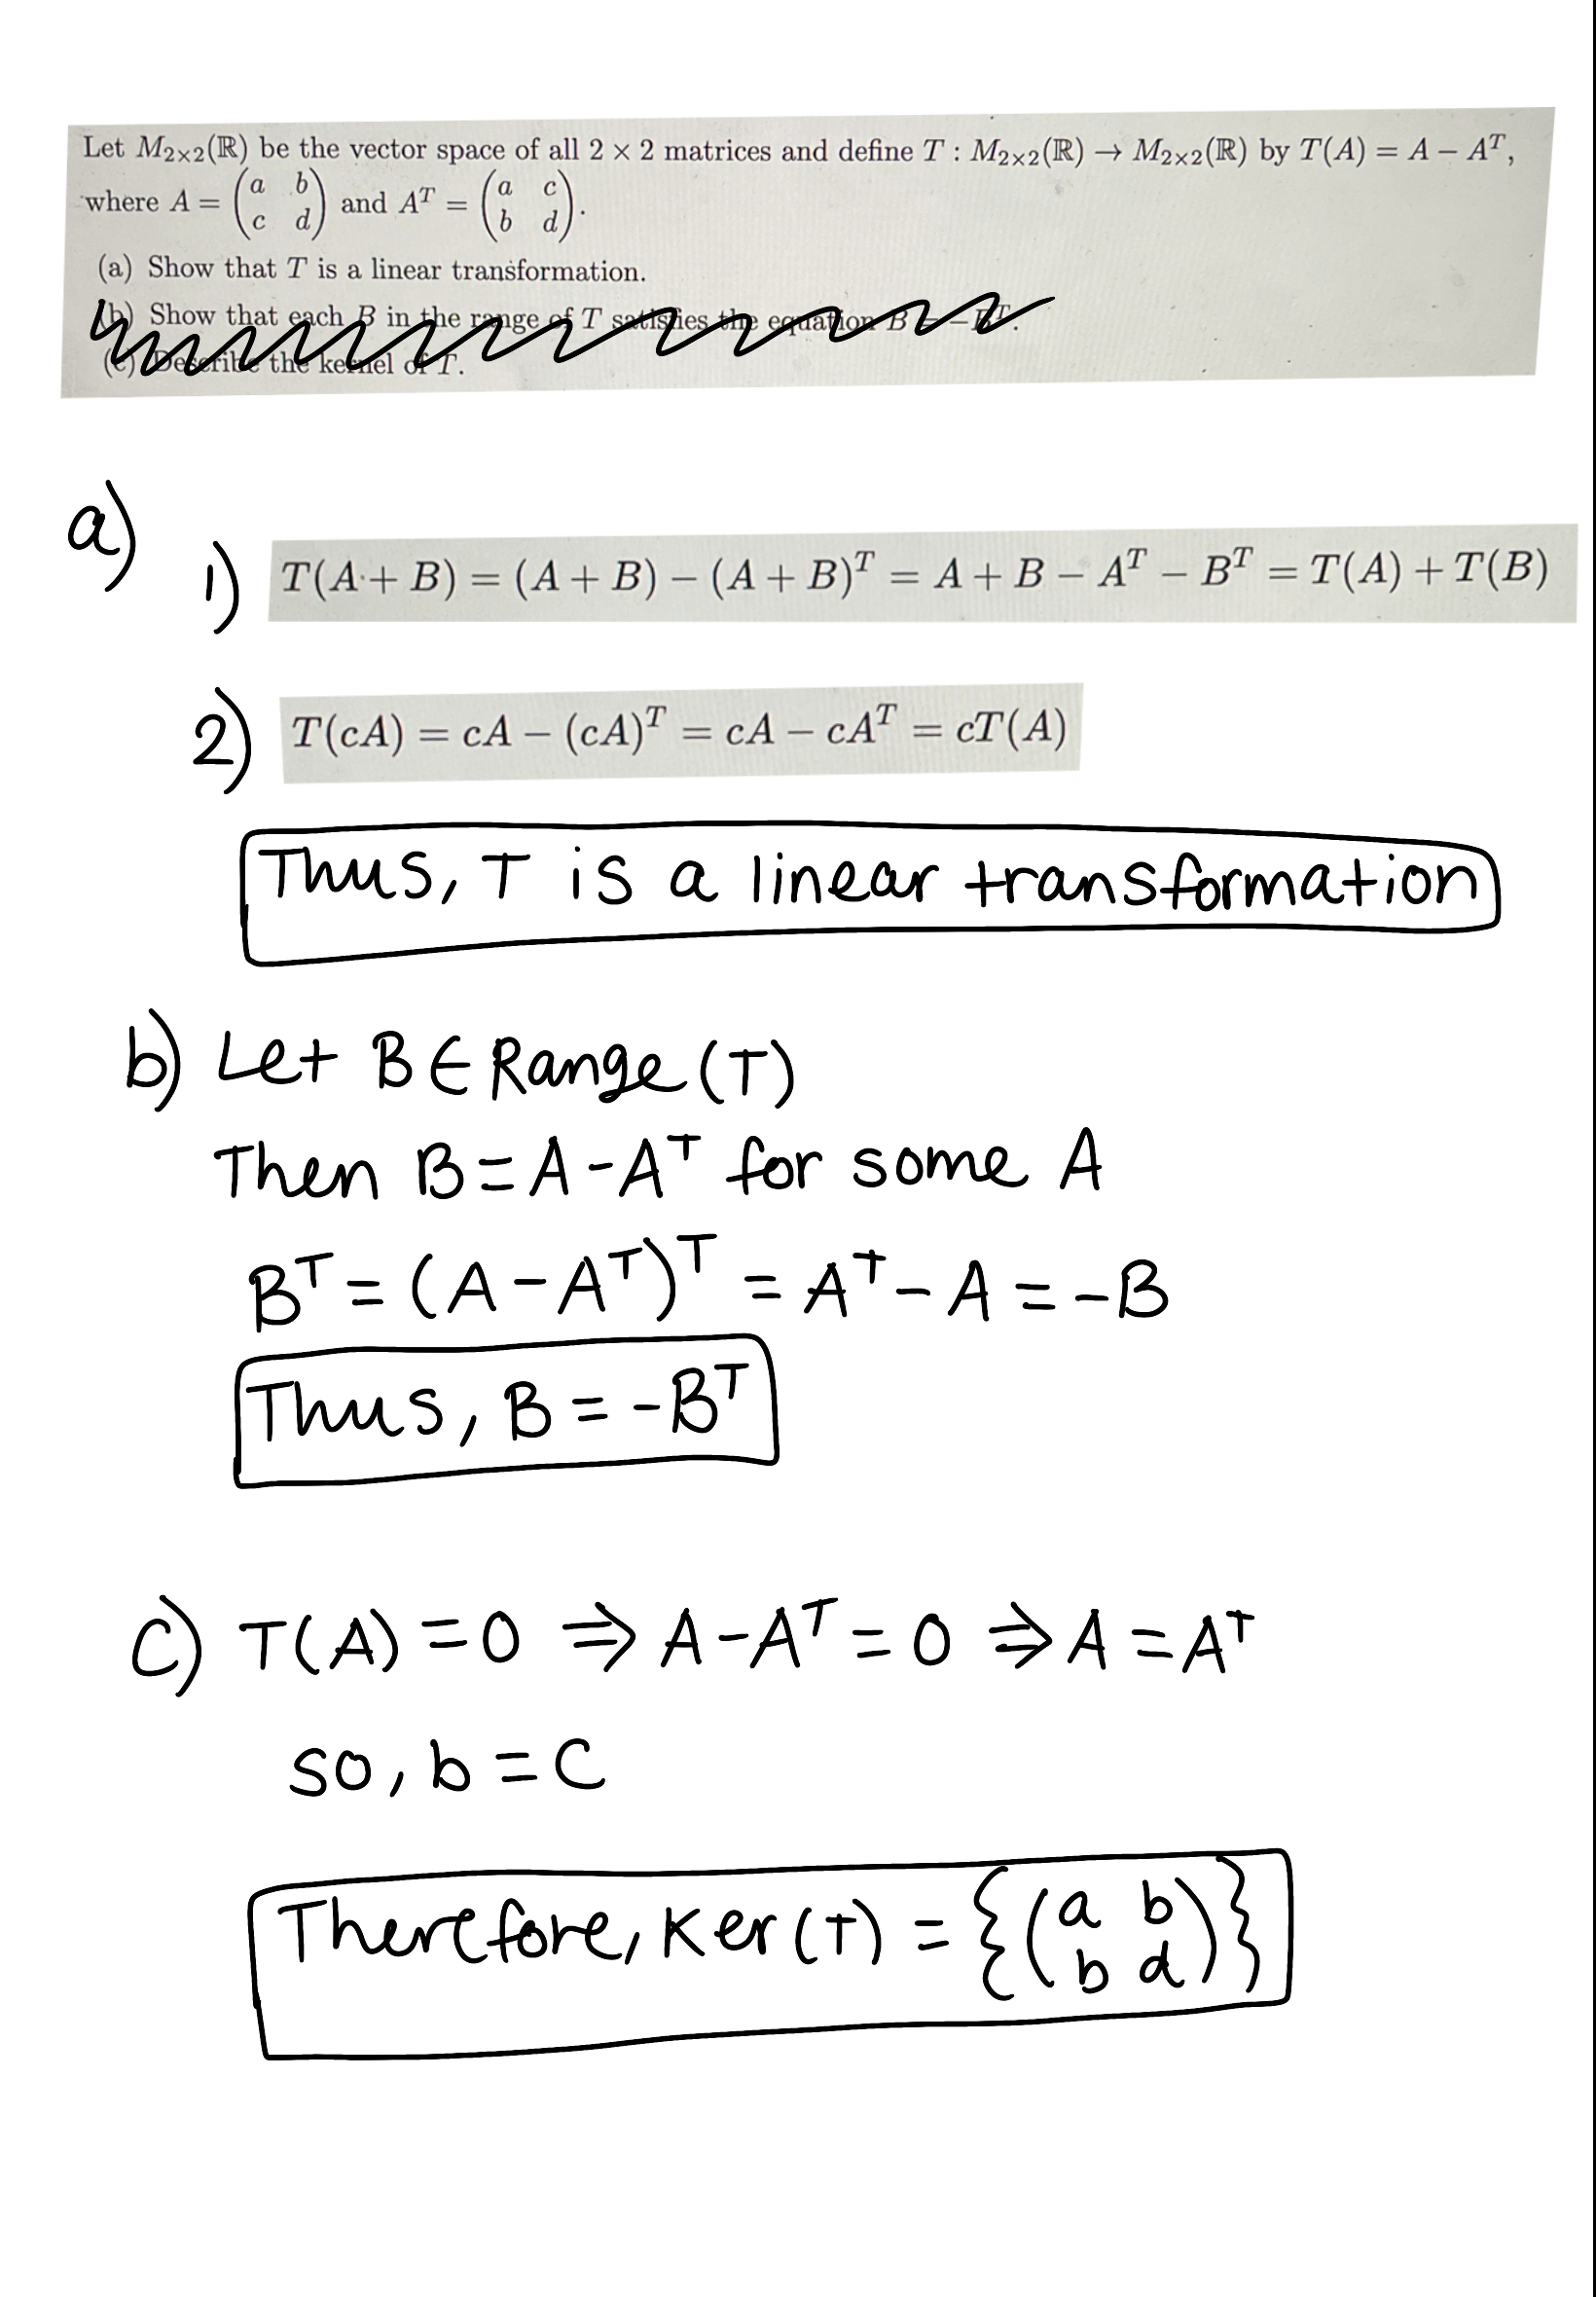 Let M₂ₓ₂(ℝ) be the vector space of all 2 × 2 matrices and define T : M₂ₓ₂(ℝ) → M₂ₓ₂(ℝ) by T(A) = A − Aᵀ,
where A = (a b; c d) and Aᵀ = (a c; b d).
(a) Show that T is a linear transformation.
(b) Show that each B in the range of T satisfies the equation B = −Bᵀ.
(c) Describe the kernel of T.
a)
1) T(A + B) = (A + B) − (A + B)ᵀ = A + B − Aᵀ − Bᵀ = T(A) + T(B)
2) T(cA) = cA − (cA)ᵀ = cA − cAᵀ = cT(A)
Thus, T is a linear transformation
b) Let B ∈ Range (T)
Then B = A − Aᵀ for some A
Bᵀ = (A − Aᵀ)ᵀ = Aᵀ − A = −B
Thus, B = −Bᵀ
c) T(A) = 0 ⇒ A − Aᵀ = 0 ⇒ A = Aᵀ
so, b = c
Therefore, Ker (T) = {(a b; b d)}